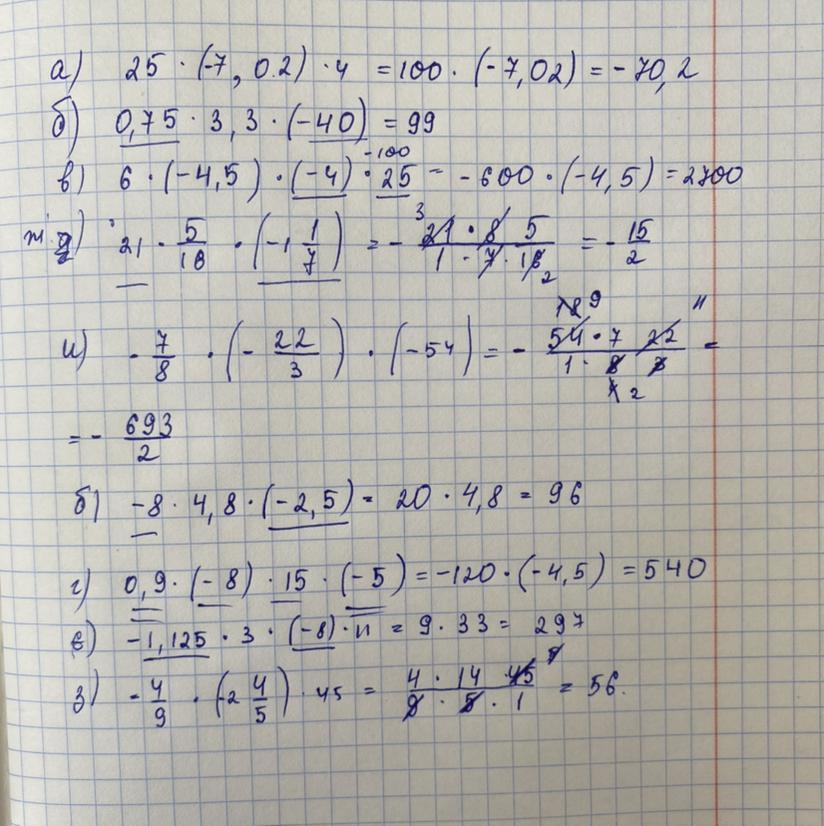 а) 25 · (-7, 0.2) · 4 = 100 · (-7,02) = -70,2
б) 0,75 · 3,3 · (-40) = 99
-100
в) 6 · (-4,5) · (-4) · 25 = -600 · (-4,5) = 2700
ж) 21 · 5/16 · (-1 1/7) = - 21 · 8 5 / 1 · 7 · 16 = - 15/2
3
2
и) - 7/8 · (- 22/3) · (-54) = - 54 · 7 22 / 1 · 8 3 =
18 9 11
4 2
= - 693/2
б) -8 · 4,8 · (-2,5) = 20 · 4,8 = 96
г) 0,9 · (-8) · 15 · (-5) = -120 · (-4,5) = 540
е) -1,125 · 3 · (-8) · 11 = 9 · 33 = 297
з) - 4/9 · (-2 4/5) · 45 = 4 · 14 45 / 9 · 5 · 1 = 56.